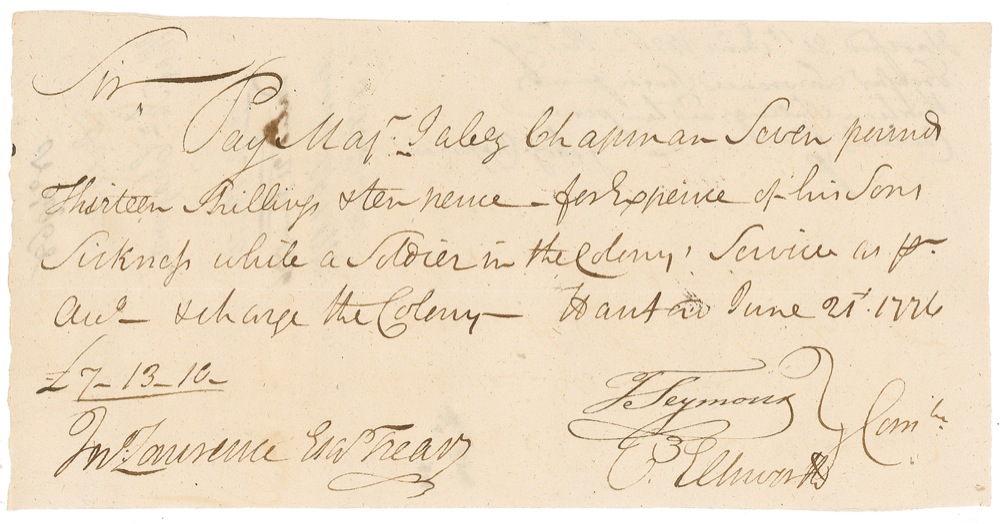 Sir
Pay Majr. Jabez Chapman Seven pounds
Thirteen Shillings & ten pence – for Expence of his Sons
Sickness while a Soldier in the Colony's Service as pr.
Acco – & charge the Colony – Hartfd June 21st. 1776
£7–13–10–
T Seymour
Comtee
Jno. Lawrence Esqr Treasr
O. Ellsworth